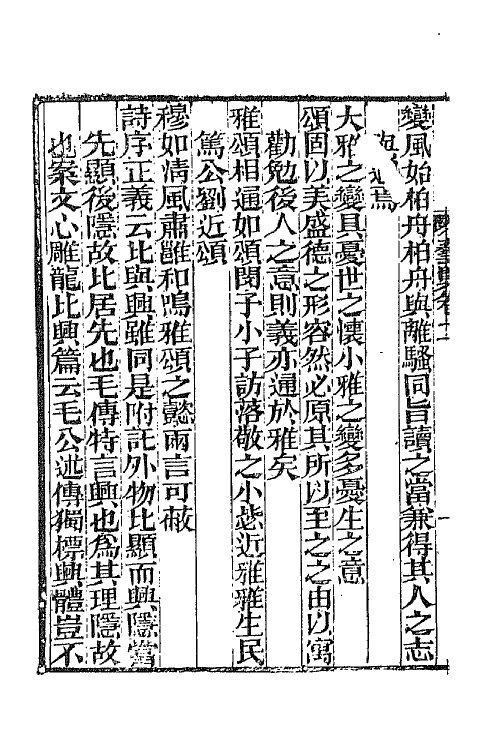 變風始柏舟柏舟與離騷同旨讀之當兼得其人之志
遇焉
大雅之變具憂世之懷小雅之變多憂生之意
頌固以美盛德之形容然必原其所以至之之由以寓
勸勉後人之意則義亦通於雅矣
雅頌相通如頌閔子小子訪落敬之小毖近雅雅生民
篤公劉近頌
穆如清風肅雝和鳴雅頌之懿兩言可蔽
詩序正義云比與興雖同是附託外物比顯而興隱當
先顯後隱故比居先也毛傳特言興也為其理隱故
也案文心雕龍比興篇云毛公述傳獨標興體豈不